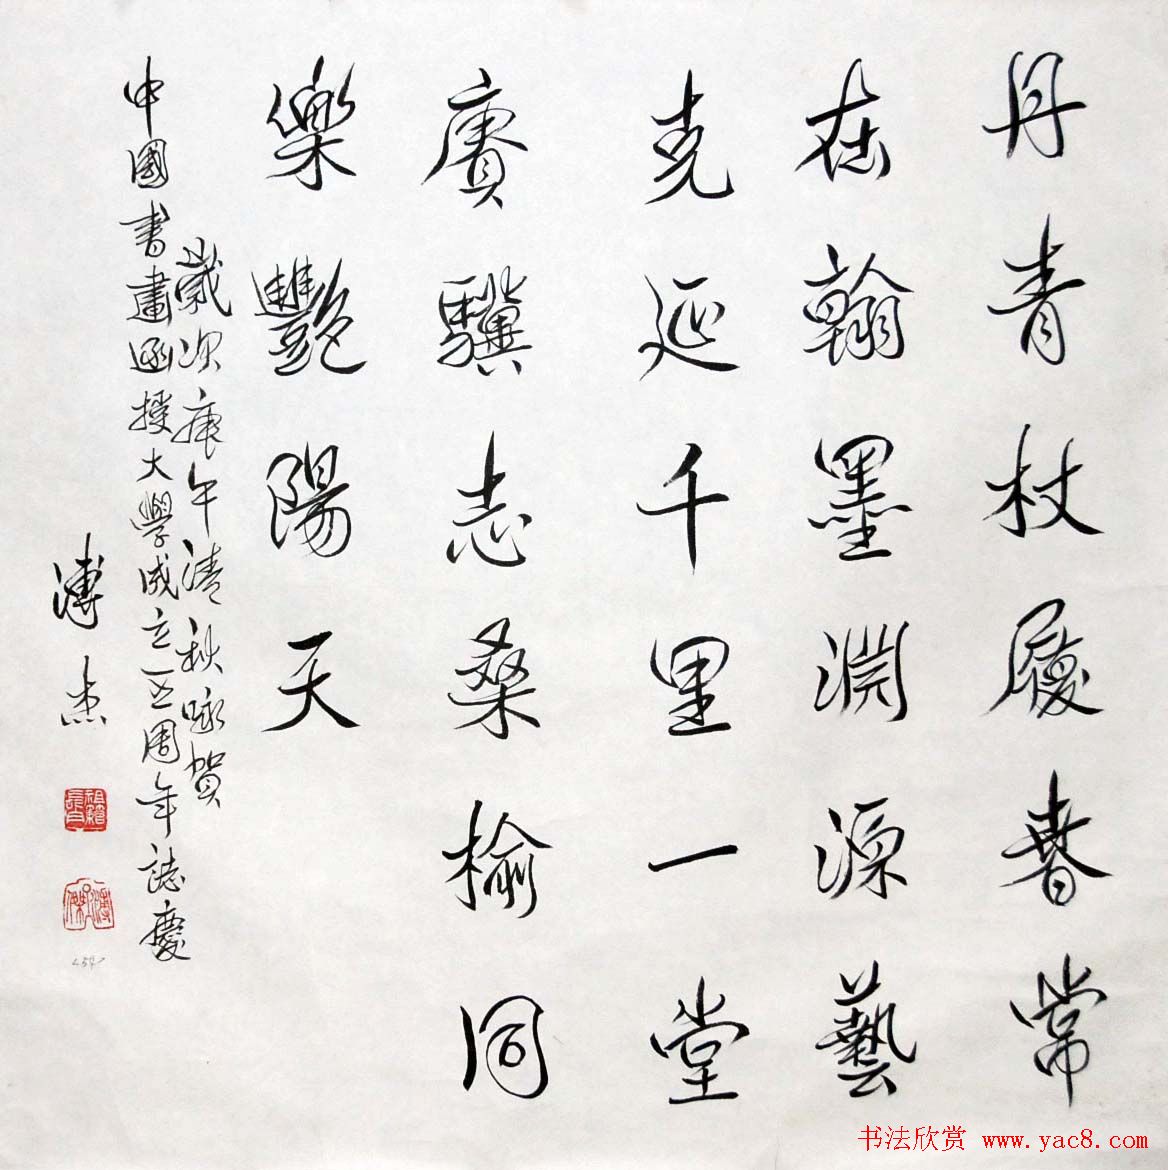 丹青杖履春常
在翰墨淵源藝
克延千里一堂
賡驥志桑榆同
樂艷陽天
歲次庚午清秋咏賀
中國書畫函授大學成立五周年誌慶
溥杰
书法欣赏 www.yac8.com